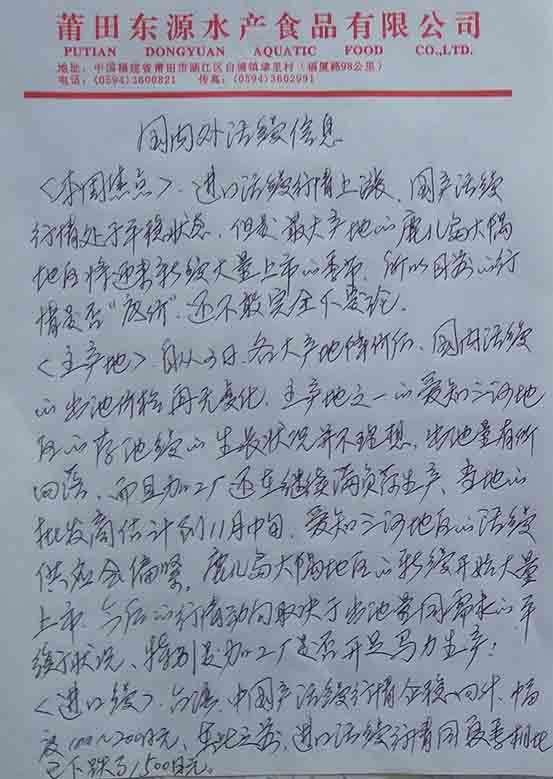 莆田东源水产食品有限公司
PUTIAN DONGYUAN AQUATIC FOOD CO.,LTD.
地址：中国福建省莆田市涵江区白塘镇肇里村（福厦路98公里）
电话：(0594)3600821 传真：(0594)3602991
国内外活鳗信息
<本周焦点>. 进口活鳗行情上涨、国产活鳗
行情处于平稳状态. 但是最大产地的鹿儿岛大隅
地区将迎来新鳗大量上市的季节. 所以目前的行
情是否“底价”. 还不敢完全下定论.
<主产地>. 自从3日各大产地降价后. 国内活鳗
的出池价格再无变化. 主产地之一的爱知三河地
区的存池鳗的生长状况并不理想. 出池量有所
回落. 而且加工厂还在继续满负荷生产、当地的
批发商估计到11月中旬. 爱知三河地区的活鳗
供应会偏紧. 鹿儿岛大隅地区的新鳗开始大量
上市. 今后的行情动向取决于出池量同需求的平
衡状况、特别是加工厂是否开足马力生产!
<进口鳗>. 台湾、中国产活鳗行情企稳回升. 幅
度100～200日元、至此之前、进口活鳗行情同夏季相比
已下跌了1500日元。